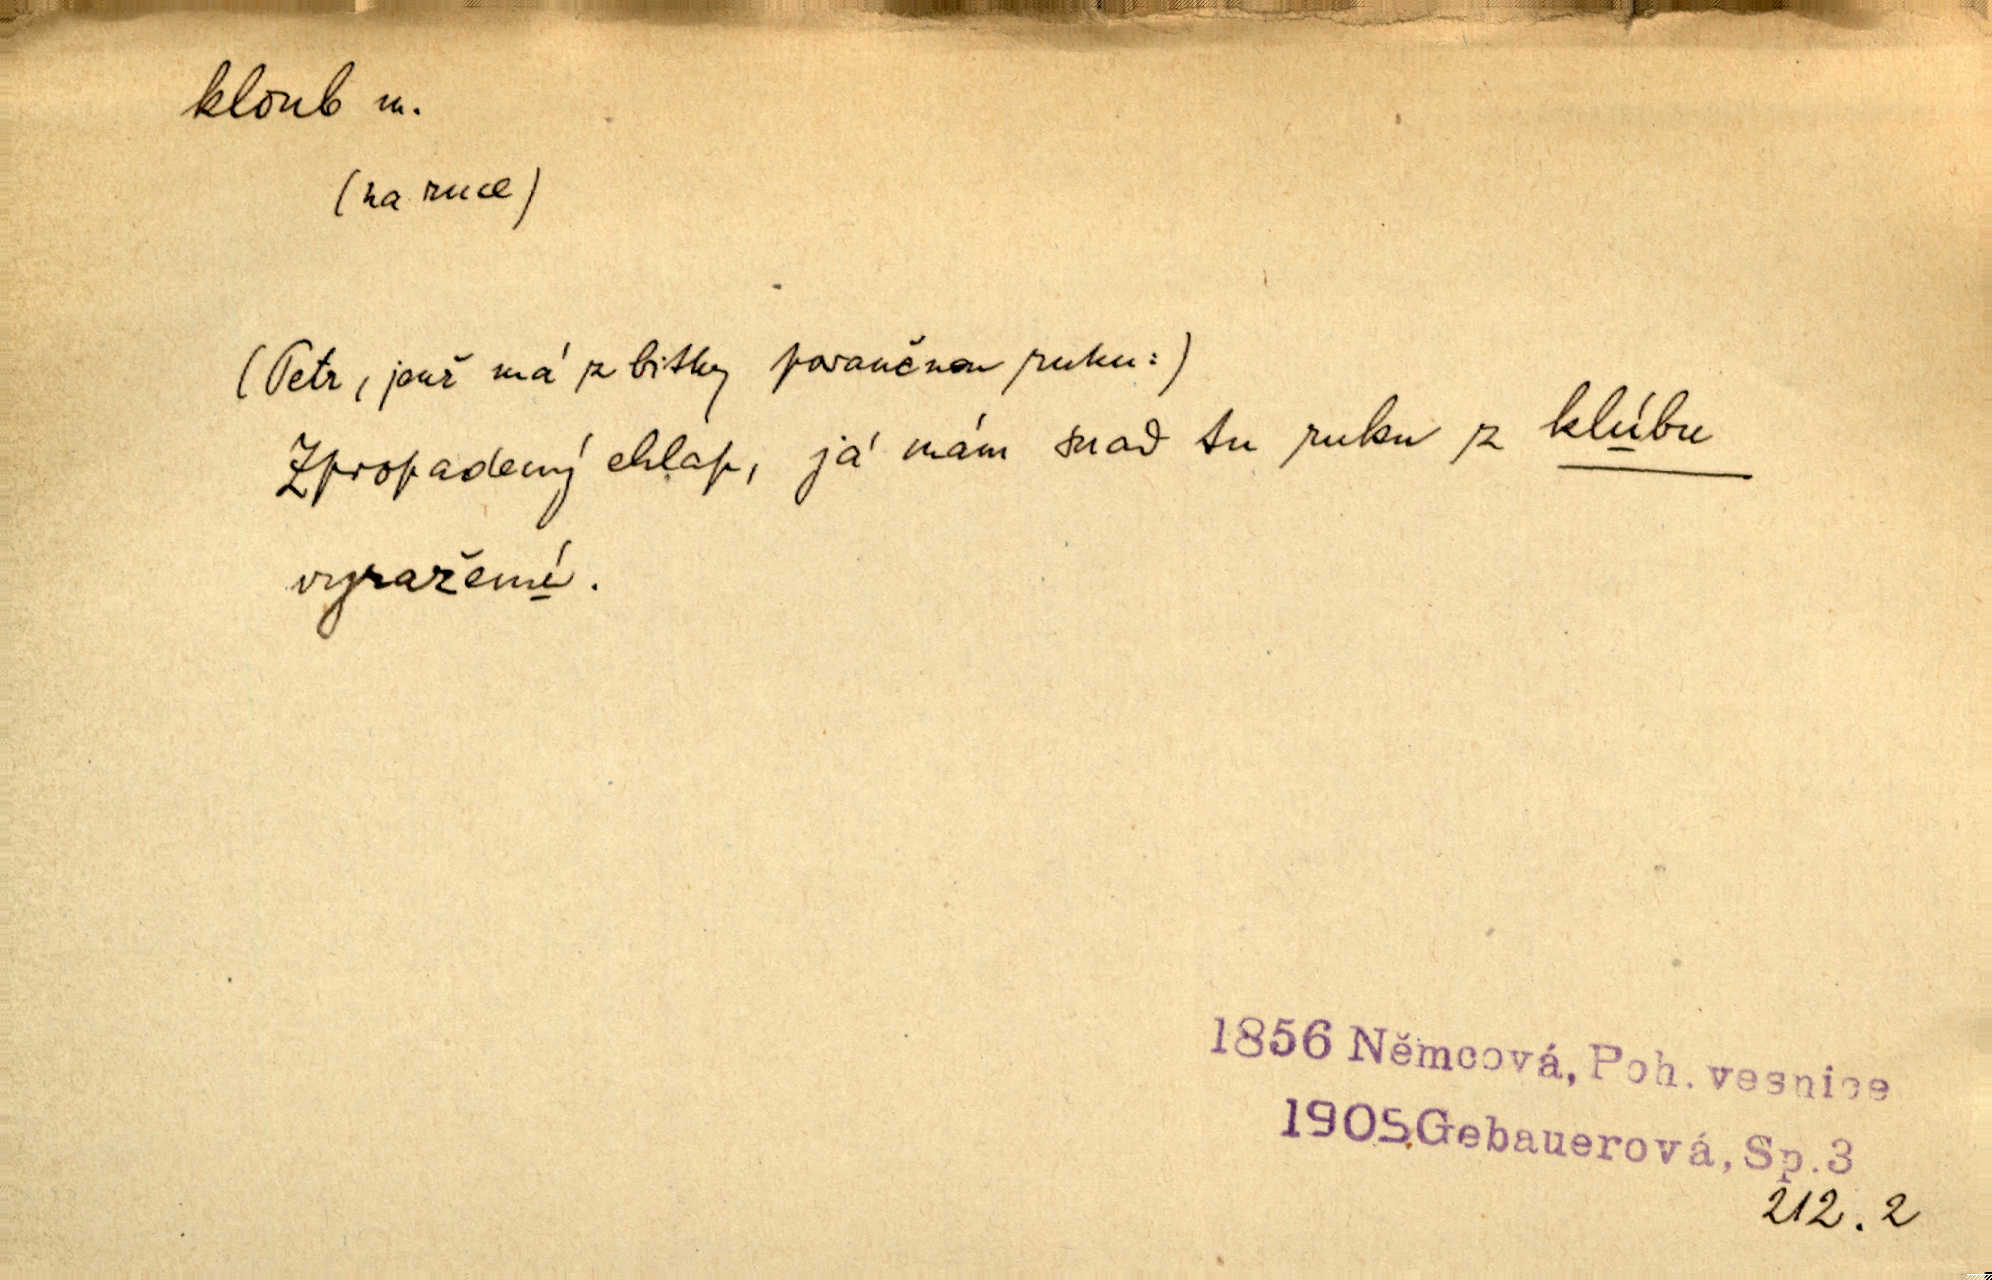 kloub m.
(na ruce)
(Petr, jenž má z bitky poraněnou ruku:)
Zpropadený chlap, já mám snad tu ruku z klúbu
vyraženú.
1856 Němcová, Poh. vesnice
1905 Gebauerová, Sp. 3
212. 2